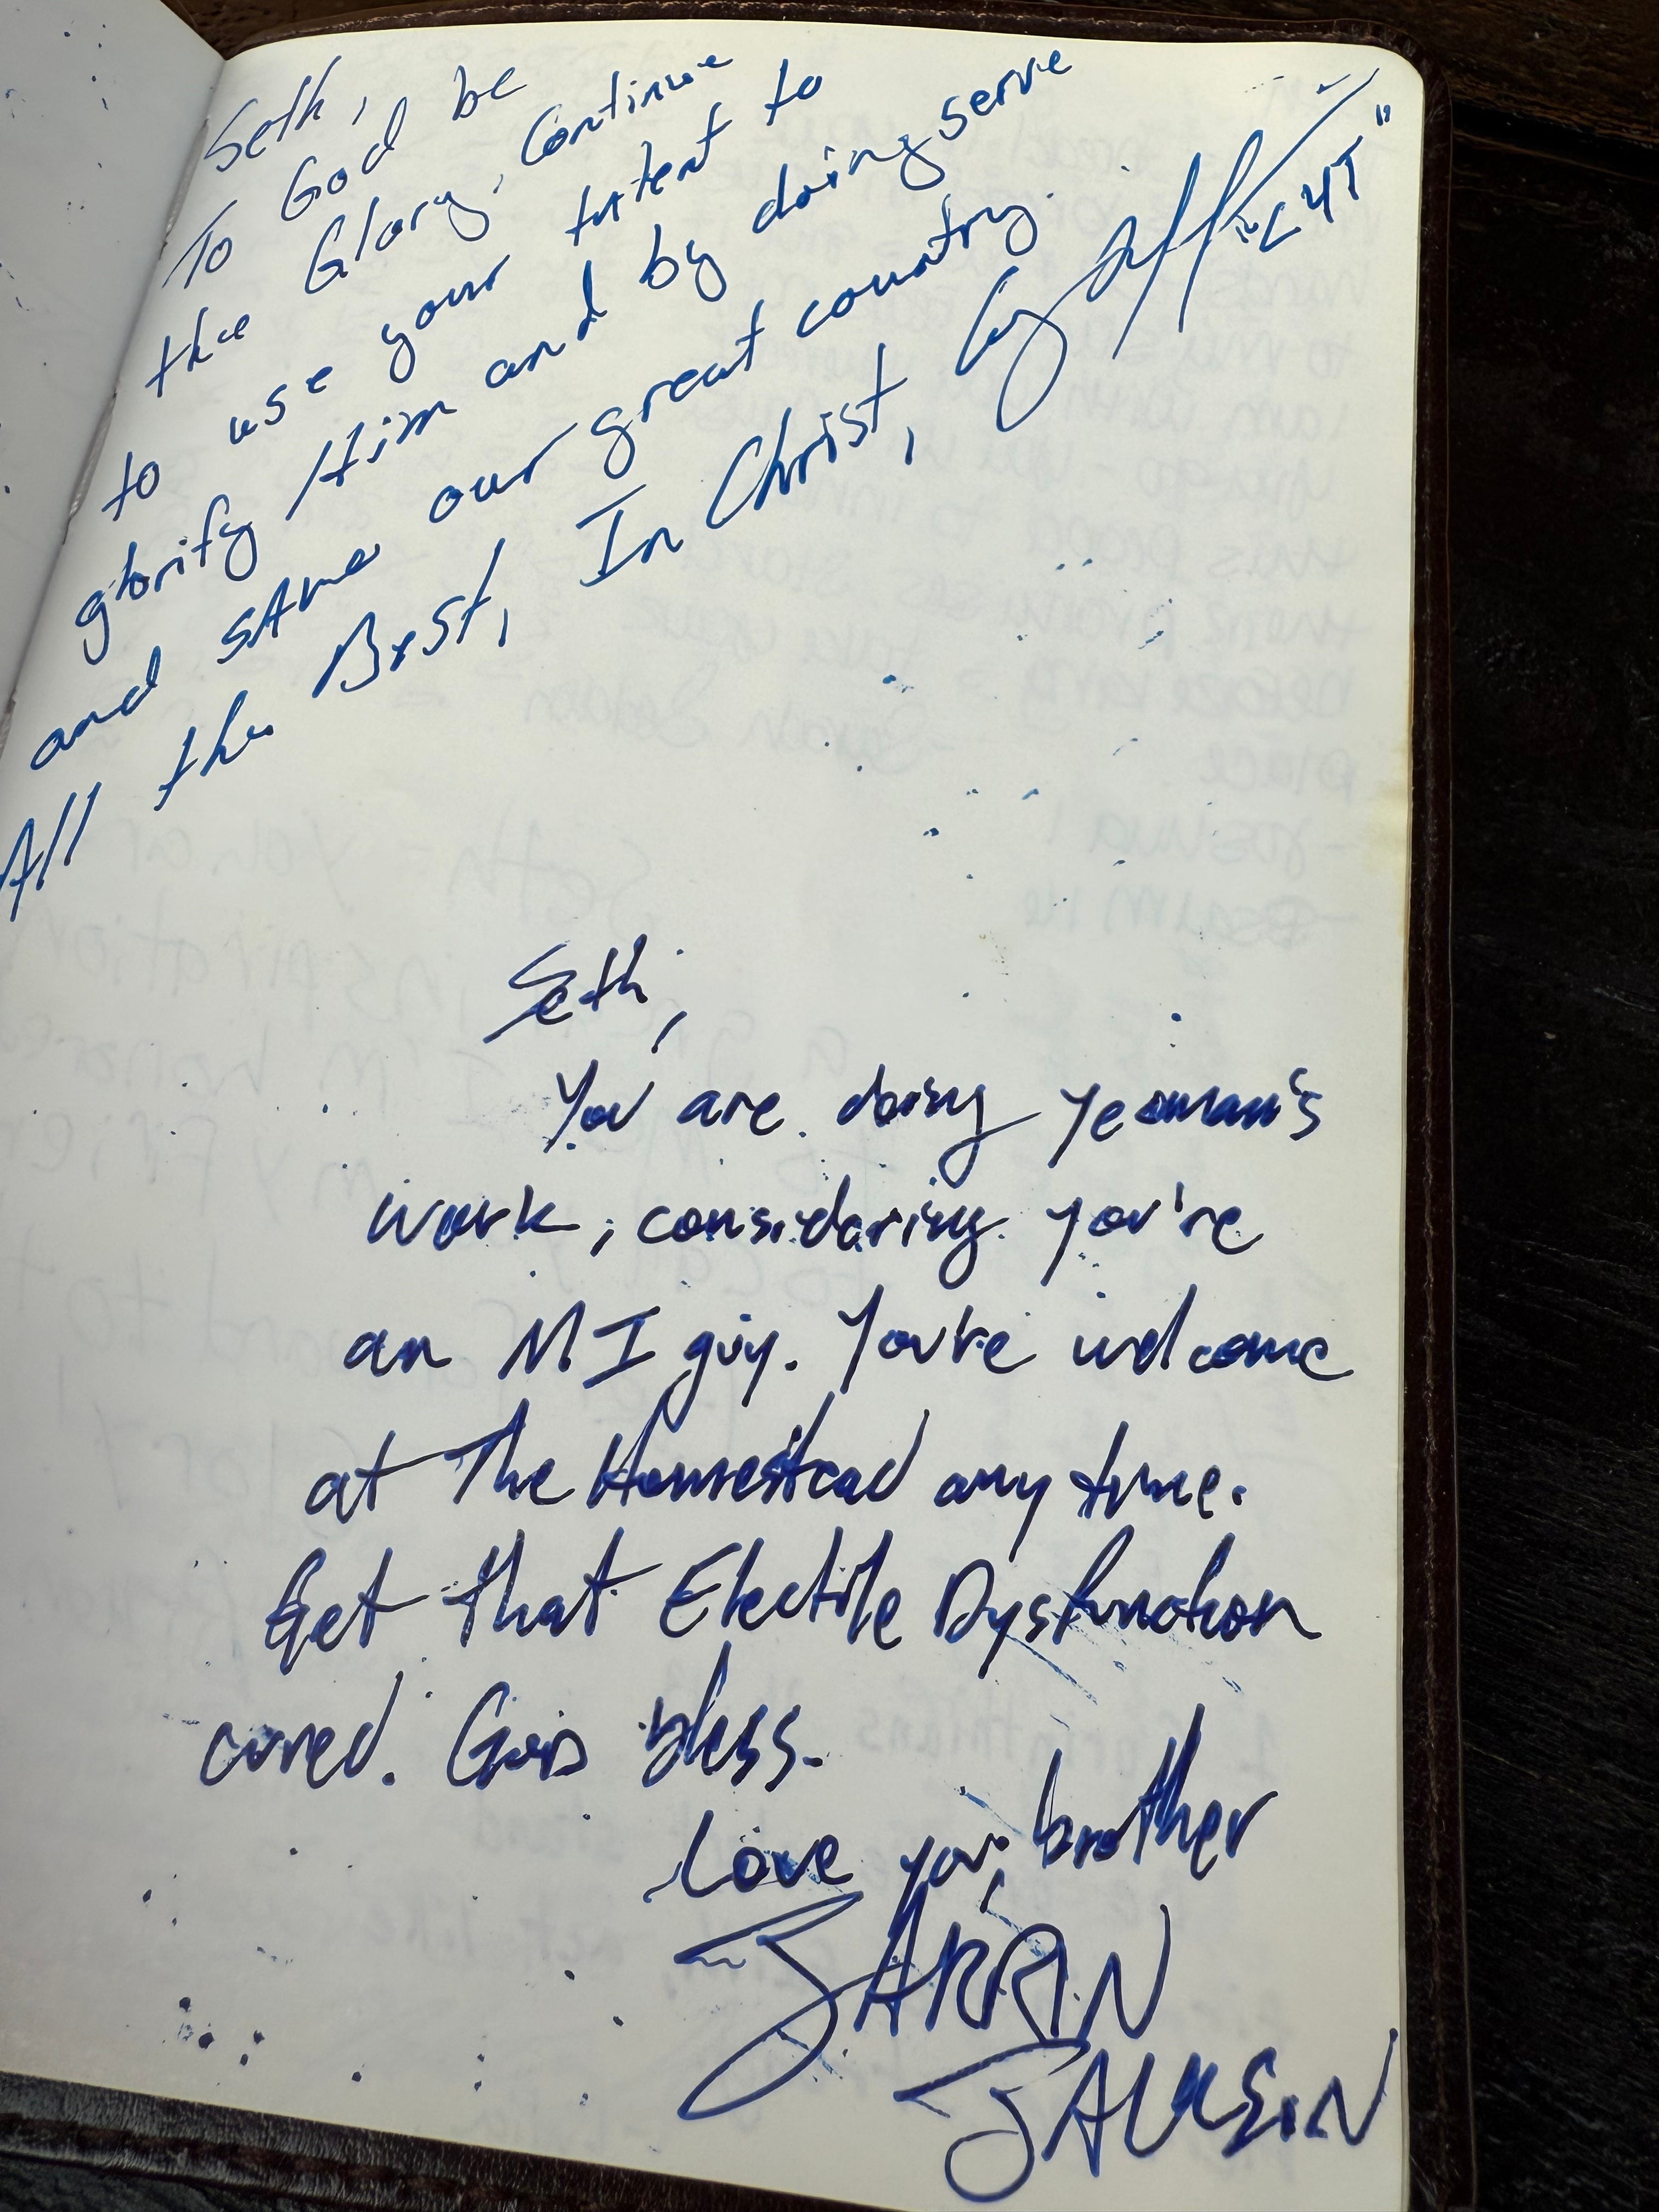 Seth,
To God be
the Glory. Continue
to use your talent to
glorify Him and by doing serve
and save our great country.
All the Best, In Christ,
"LYT"
Seth,
You are doing yeoman's
work, considering you're
an MI guy. You're welcome
at The Homestead any time.
Get that Electile Dysfunction
cured. God bless.
Love you, brother
JARRIN
JACKSON